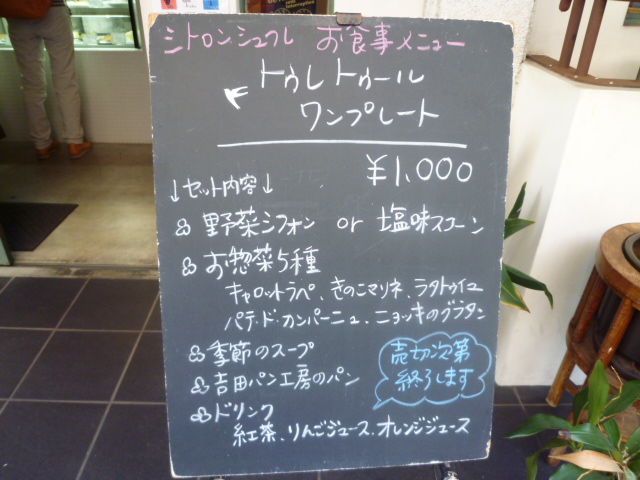 シトロンシュクレ お食事メニュー
トゥレトゥール
ワンプレート
¥1,000
↓セット内容↓
野菜シフォン or 塩味スコーン
お惣菜5種
キャロットラペ、きのこマリネ、ラタトゥイユ
パテ・ド・カンパーニュ、ニョッキのグラタン
季節のスープ
吉田パン工房のパン
ドリンク
紅茶、りんごジュース、オレンジジュース
売切次第
終了します